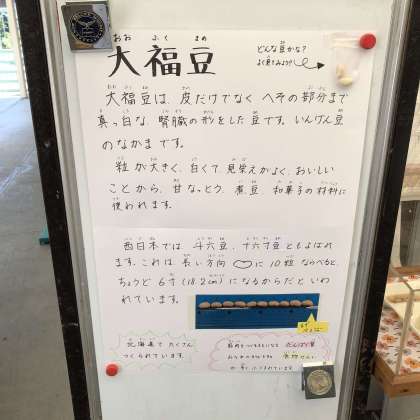 おお ふく まめ
大福豆
どんな豆かな?
よく見てみよう!!
大福豆は、皮だけでなく へその部分まで
真っ白な、腎臓の形をした豆です。いんげん豆
のなかまです。
粒が大きく、白くて、見栄えがよく、おいしい
ことから、甘なっとう、煮豆、和菓子の材料に
使われます。
西日本では 斗六豆、十六寸豆ともよばれ
ます。これは 長い方向 に 10粒ならべると、
ちょうど 6寸(18.2cm)になるからだといわ
れています。
北海道で たくさん
つくられています。
たんぱく質